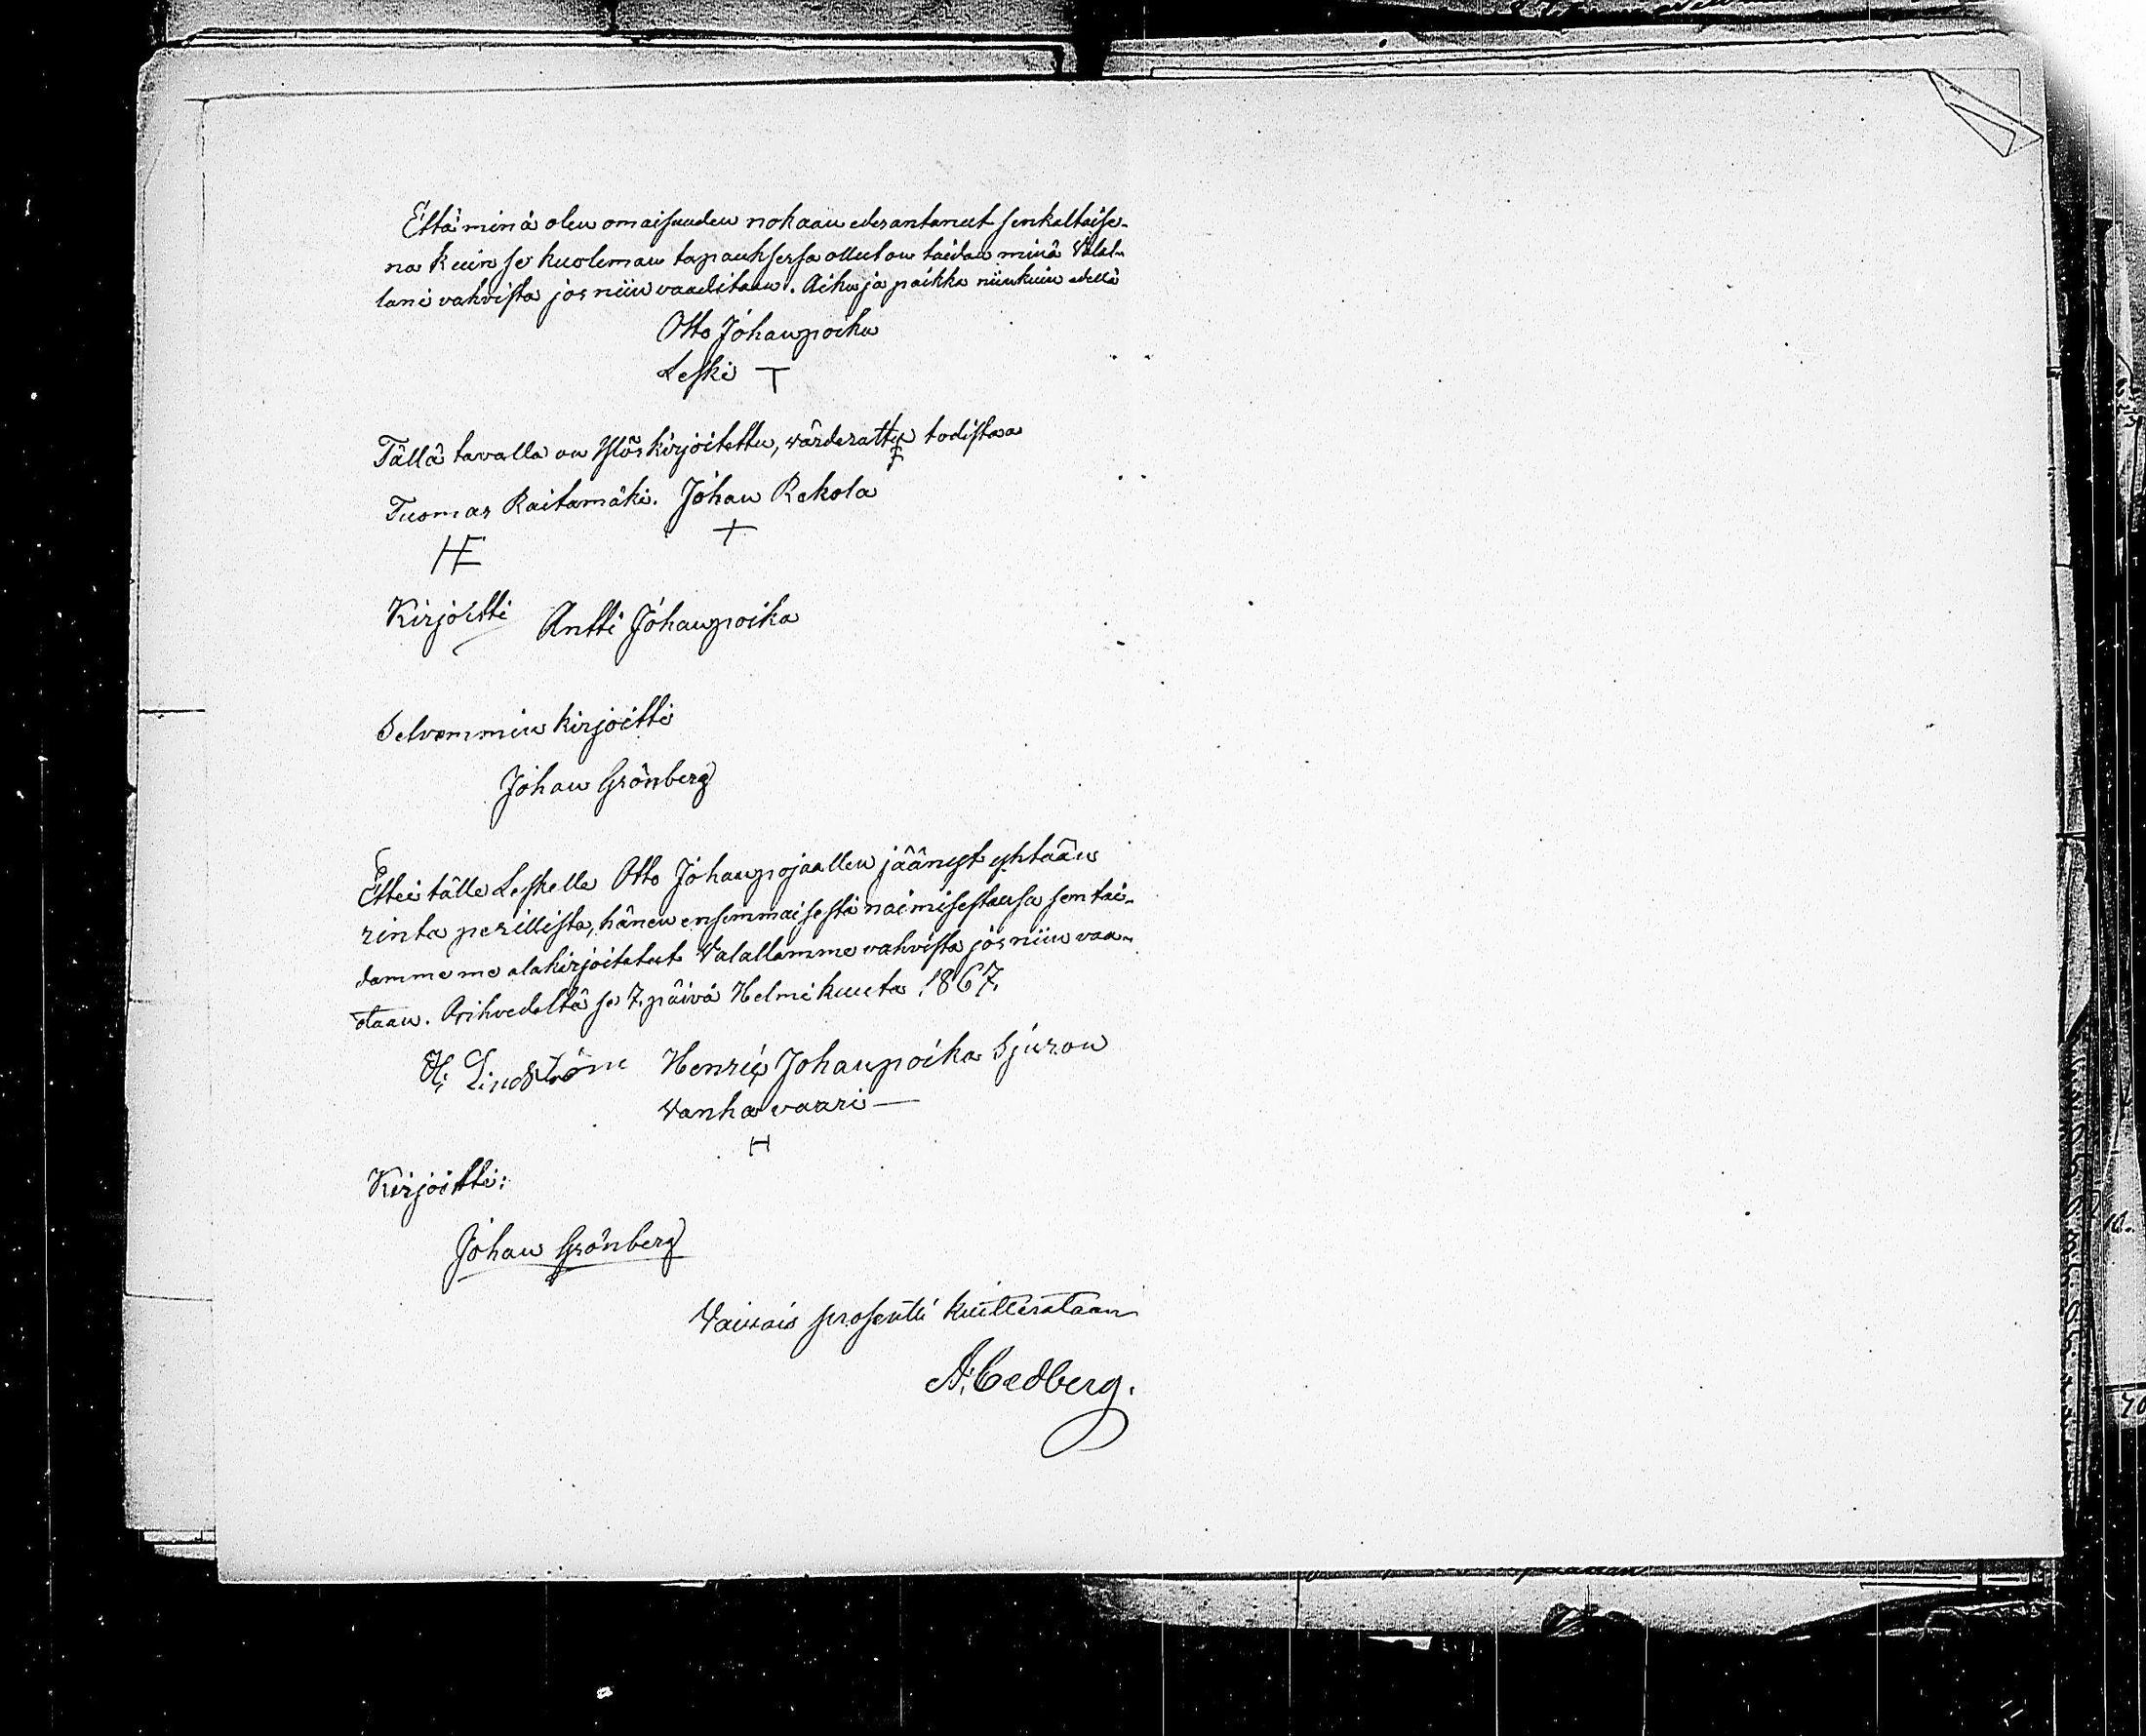 Että minä olen omaisuuden nokaan edesantanut senkaltaise-
na kuin se kuoleman tapauksessa ollut on taidan minä Valal-
lani vahvista jos niin vaaditaan. Aika ja paikka niinkuin edellä
Otto Johanpoika
Leski T
Tällä tavalla on Ylöskirjoitettu, värderattu todistaa
Tuomas Raitamäki. Johan Rekola
HE +
Kirjoitti Antti Johanpoika
Selvemmin kirjoitti
Johan Grönberg
Ettei tälle Leskelle Otto Johanpojaallen jäänyt yhtään
rinta perillistä, hänen ensimmaisestä naimisestansa sen tai-
damme me alakirjoitetut Valallamme vahvista jos niin vaa-
ditaan. Orihvedeltä se 7. päivä Helmikuuta 1867.
H; Lindström Henrig Johanpoika Sjuron
Vanha vaari —
H
Kirjoitti:
Johan Grönberg
Vaivais prosentti kuitterataan
A; Cedberg.